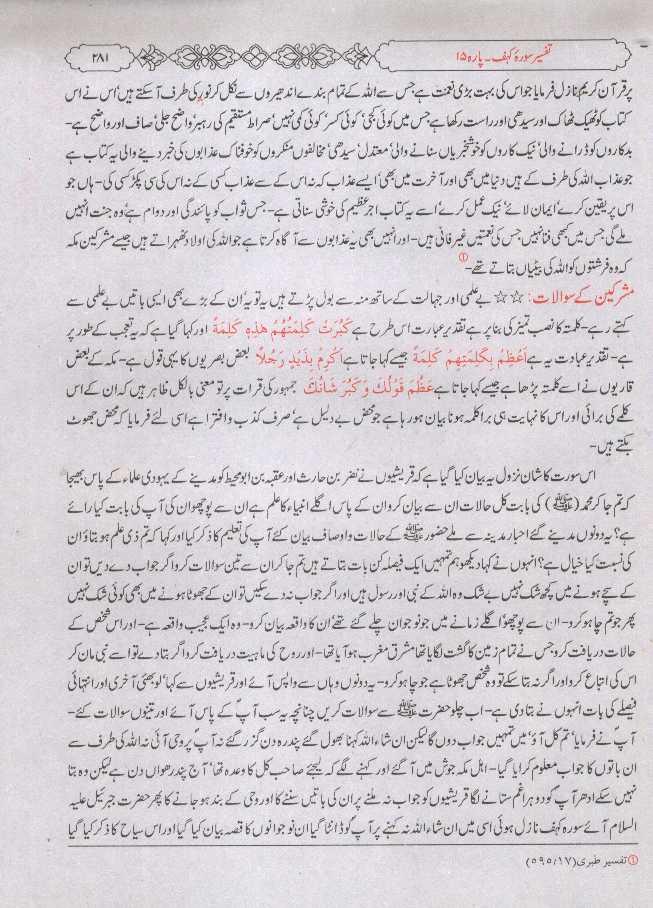 تفسیر سورۂ کہف۔ پارہ ۱۵
۲۸۱
پر قرآن کریم نازل فرمایا جو اس کی بہت بڑی نعمت ہے جس سے اللہ کے تمام بندے اندھیروں سے نکل کر نور کی طرف آ سکتے ہیں' اس نے اس
کتاب کو ٹھیک ٹھاک اور سیدھی اور راست رکھا ہے جس میں کوئی کجی' کوئی کسر' کوئی کمی نہیں' صراط مستقیم کی رہبر' واضح' جلی' صاف اور واضح ہے۔
بدکاروں کو ڈرانے والی' نیک کاروں کو خوشخبریاں سنانے والی' معتدل' سیدھی' مخالفوں منکروں کو خوفناک عذابوں کی خبر دینے والی یہ کتاب ہے
جو عذاب اللہ کی طرف کے ہیں دنیا میں بھی اور آخرت میں بھی' ایسے عذاب کہ نہ اس کے سے عذاب کسی کے نہ اس کی سی پکڑ کسی کی۔ ہاں جو
اس پر یقین کرے' ایمان لائے' نیک عمل کرے' اسے یہ کتاب اجر عظیم کی خوشی سناتی ہے۔ جس ثواب کو پائندگی اور دوام ہے' وہ جنت انہیں
ملے گی جس میں کبھی فنا نہیں جس کی نعمتیں غیر فانی ہیں۔ اور انہیں بھی یہ عذابوں سے آگاہ کرتا ہے جو اللہ کی اولاد ٹھہراتے ہیں جیسے مشرکین مکہ
کہ وہ فرشتوں کو اللہ کی بیٹیاں بتاتے تھے۔ ①
مشرکین کے سوالات: ☆☆ بے علمی اور جہالت کے ساتھ منہ سے بول پڑتے ہیں یہ تو یہ ان کے بڑے بھی ایسی باتیں بے علمی سے
کہتے رہے۔ کلمتہ کا نصب تمیز کی بنا پر ہے تقدیر عبارت اس طرح ہے كَبُرَتْ كَلِمَتُهُمْ هٰذِهٖ كَلِمَةً اور کہا گیا ہے کہ یہ تعجب کے طور پر
ہے۔ تقدیر عبادت یہ ہے اَعْظِمُ بِكَلِمَتِهِمْ كَلِمَةً جیسے کہا جاتا ہے اَكْرِمْ بِذَيْدٍ رَجُلًا بعض بصریوں کا یہی قول ہے۔ مکہ کے بعض
قاریوں نے اسے کلمتہ پڑھا ہے جیسے کہا جاتا ہے عَظُمَ قَوْلُكَ وَكَبُرَ شَانُكَ جمہور کی قرات پر تو معنی بالکل ظاہر ہیں کہ ان کے اس
کلمے کی برائی اور اس کا نہایت ہی برا کلمہ ہونا بیان ہو رہا ہے جو محض بے دلیل ہے' صرف کذب و افترا ہے اسی لئے فرمایا کہ محض جھوٹ
بکتے ہیں۔
اس سورت کا شان نزول یہ بیان کیا گیا ہے کہ قریشیوں نے نضر بن حارث اور عقبہ بن ابو محیط کو مدینے کے یہودی علماء کے پاس بھیجا
کہ تم جا کر محمد (ﷺ) کی بابت کل حالات ان سے بیان کرو ان کے پاس اگلے انبیاء کا علم ہے ان سے پوچھو ان کی آپ کی بابت کیا رائے
ہے؟ یہ دونوں مدینے گئے احبار مدینہ سے ملے حضور ﷺ کے حالات و اوصاف بیان کئے آپ کی تعلیم کا ذکر کیا اور کہا کہ تم ذی علم ہو بتاؤ ان
کی نسبت کیا خیال ہے؟ انہوں نے کہا دیکھو ہم تمہیں ایک فیصلہ کن بات بتاتے ہیں تم جا کر ان سے تین سوالات کرو اگر جواب دے دیں تو ان
کے سچے ہونے میں کچھ شک نہیں بے شک وہ اللہ کے نبی اور رسول ہیں اور اگر جواب نہ دے سکیں تو ان کے جھوٹا ہونے میں بھی کوئی شک نہیں
پھر جو تم چاہو کرو۔ ان سے پوچھو' اگلے زمانے میں جو نوجوان چلے گئے تھے' ان کا واقعہ بیان کرو۔ وہ ایک عجیب واقعہ ہے۔ اور اس شخص کے
حالات دریافت کرو جس نے تمام زمین کا گشت لگایا تھا مشرق مغرب ہو آیا تھا۔ اور روح کی ماہیت دریافت کرو اگر بتا دے تو اسے نبی مان کر
اس کی اتباع کرو اور اگر نہ بتا سکے تو وہ شخص جھوٹا ہے جو چاہو کرو۔ یہ دونوں وہاں سے واپس آئے اور قریشیوں سے کہا' لو بھئی آخری اور انتہائی
فیصلے کی بات انہوں نے بتا دی ہے۔ اب چلو حضرت ﷺ سے سوالات کریں چنانچہ یہ سب آپ کے پاس آئے اور تینوں سوالات کئے۔
آپ نے فرمایا' تم کل آؤ' میں تمہیں جواب دوں گا لیکن ان شاء اللہ کہنا بھول گئے پندرہ دن گزر گئے نہ آپ پر وحی آئی نہ اللہ کی طرف سے
ان باتوں کا جواب معلوم کرایا گیا۔ اہل مکہ جوش میں آ گئے اور کہنے لگے کہ لیجئے صاحب کل کا وعدہ تھا' آج پندرھواں دن ہے لیکن وہ بتا
نہیں سکے ادھر آپ کو دوہرا غم ستانے لگا قریشیوں کو جواب نہ ملنے پر ان کی باتیں سننے کا اور وحی کے بند ہو جانے کا پھر حضرت جبرئیل علیہ
السلام آئے سورہ کہف نازل ہوئی اسی میں ان شاء اللہ نہ کہنے پر آپ کو ڈانٹا گیا ان نوجوانوں کا قصہ بیان کیا گیا اور اس سیاح کا ذکر کیا گیا
① تفسیر طبری (۵۹۵/۱۷)